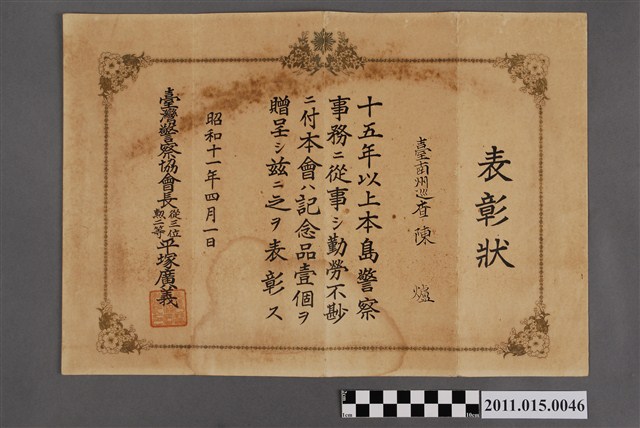 表彰狀
臺南州巡查 陳 爐
十五年以上本島警察
事務ニ從事シ勤勞不尠
ニ付本會ハ記念品壹個ヲ
贈呈シ茲ニ之ヲ表彰ス
昭和十一年四月一日
臺灣警察協會長 從三位 勲二等 平塚廣義
1cm 10cm
2011.015.0046